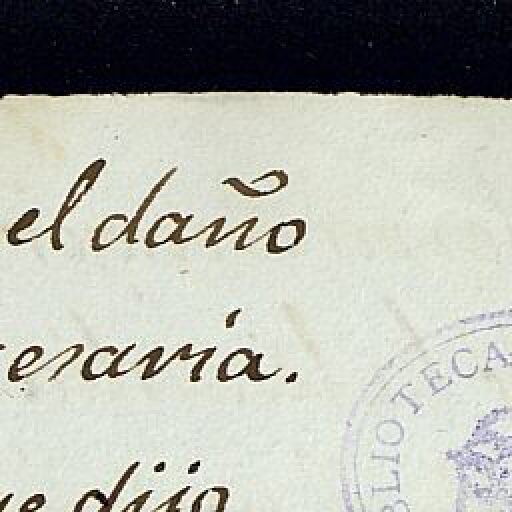 el daño
cesaria.
ue dijo
BLIOTECA